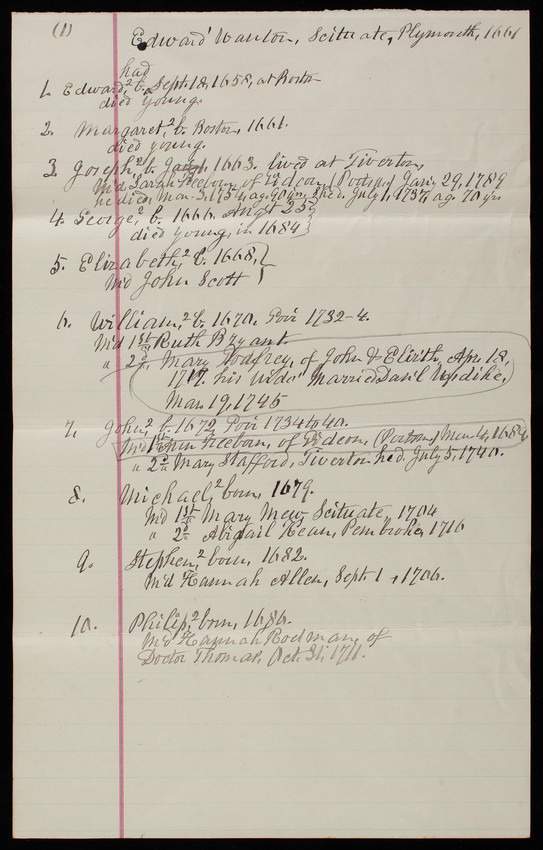 (1)
Edward Wanton, Scituate, Plymouth, 1661
had
1. Edward,² b. Sept. 18, 1658, at Boston
died young.
2. Margaret,² b. Boston, 1661.
died young.
3. Joseph,² b. 1663. lived at Tiverton,
M'd Sarah Freeborn, of Gideon, (Ports.) Jan. 29, 1789
he died Mar. 3, 1754, ag. 90 yrs. She d. July, 1, 1737, ag. 70 yrs
4. George,² b. 1666. Augt 25
died young, in 1684
5. Elizabeth,² b. 1668,
M'd John Scott
6. William,² b. 1670. Gov. 1732-4.
M'd 1st Ruth Bryant.
" 2d, Mary Godfrey, of John & Eliz'th, Apr. 18,
1717. his wido' Married Dan'l Updike,
Mar. 19, 1745
7. John,² b. 1672 Gov. 1734 to 40.
M'd 1st Ann Freeborn, of Gideon, (Portsm)
" 2d Mary Stafford, Tiverton he d. July 5, 1740.
8. Michael,² born, 1679.
M'd 1st Mary New, Scituate, 1704
" 2d Abigail Kean, Pembroke, 1716
9. Stephen,² born, 1682.
M'd Hannah Allen, Sept 1, 1706.
10. Philip,² born, 1686.
M'd Hannah Rodman, of
Doctor Thomas, Oct. 31, 1711.